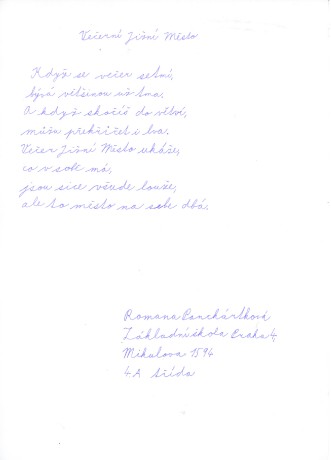 Večerní Jižní Město
Když se večer setmí,
bývá většinou už tma.
A když skočíš do větví,
můžu překřičet i lva.
Večer Jižní Město ukáže,
co v sobě má,
jsou sice všude louže,
ale to město na sebe dbá.
Romana Panchártková
Základní škola Praha 4,
Mikulova 1594
4A třída